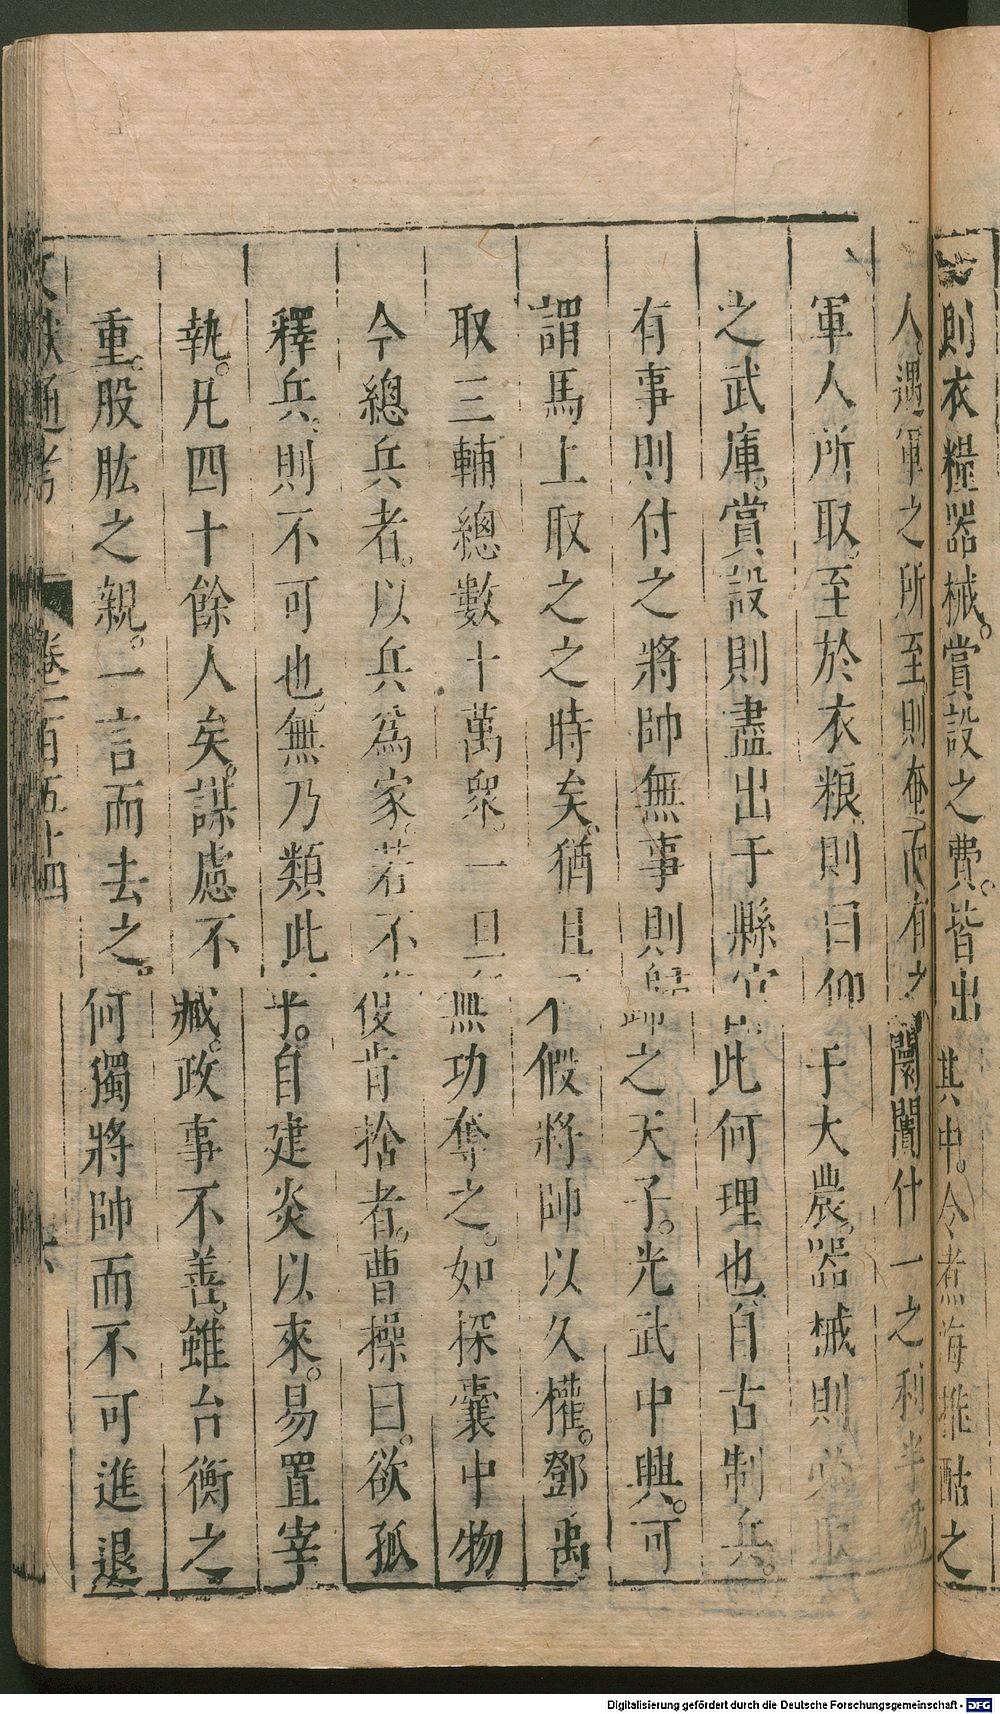 則衣糧器械。賞設之費。皆出其中。令煮海榷酤之
人。遇軍之所至則奄而有之闤闠什一之利半爲
軍人所取。至於衣粮。則曰仰于大農。器械則必取
之武庫。賞設則盡出于縣官此何理也自古制兵。
有事則付之將帥無事則歸之天子。光武中興。可
謂馬上取之之時矣。猶且不假將帥以久權。鄧禹
取三輔總數十萬衆。一旦無功奪之。如探囊中物
今總兵者。以兵爲家。若不復肯捨者。曹操曰。欲孤
釋兵。則不可也。無乃類此乎。自建炎以來。易置宰
執。凡四十餘人矣。謀慮不臧。政事不善。雖台衡之
重。股肱之親。一言而去之。何獨將帥而不可進退
文獻通考 卷一百五十四 六
Digitalisierung gefördert durch die Deutsche Forschungsgemeinschaft - DFG